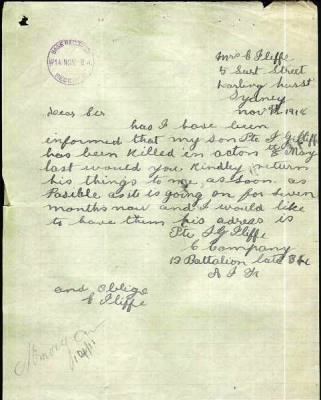 BASE RECORDS
14 NOV
Mrs E Iliffe
5 Surt Street
Darling hurst
Sydney
nov 1918
Dear Cer
has I have been
informed that my son Pte J G Iliffe
has been Killed in acton 8 May
last would you Kindley return
his things to me as soon as
Pasible as it is going on for seven
months now and I would like
to have them his adress is
Pte J G Iliffe
C Company
19 Battalion late
A I F
and oblige
E Iliffe